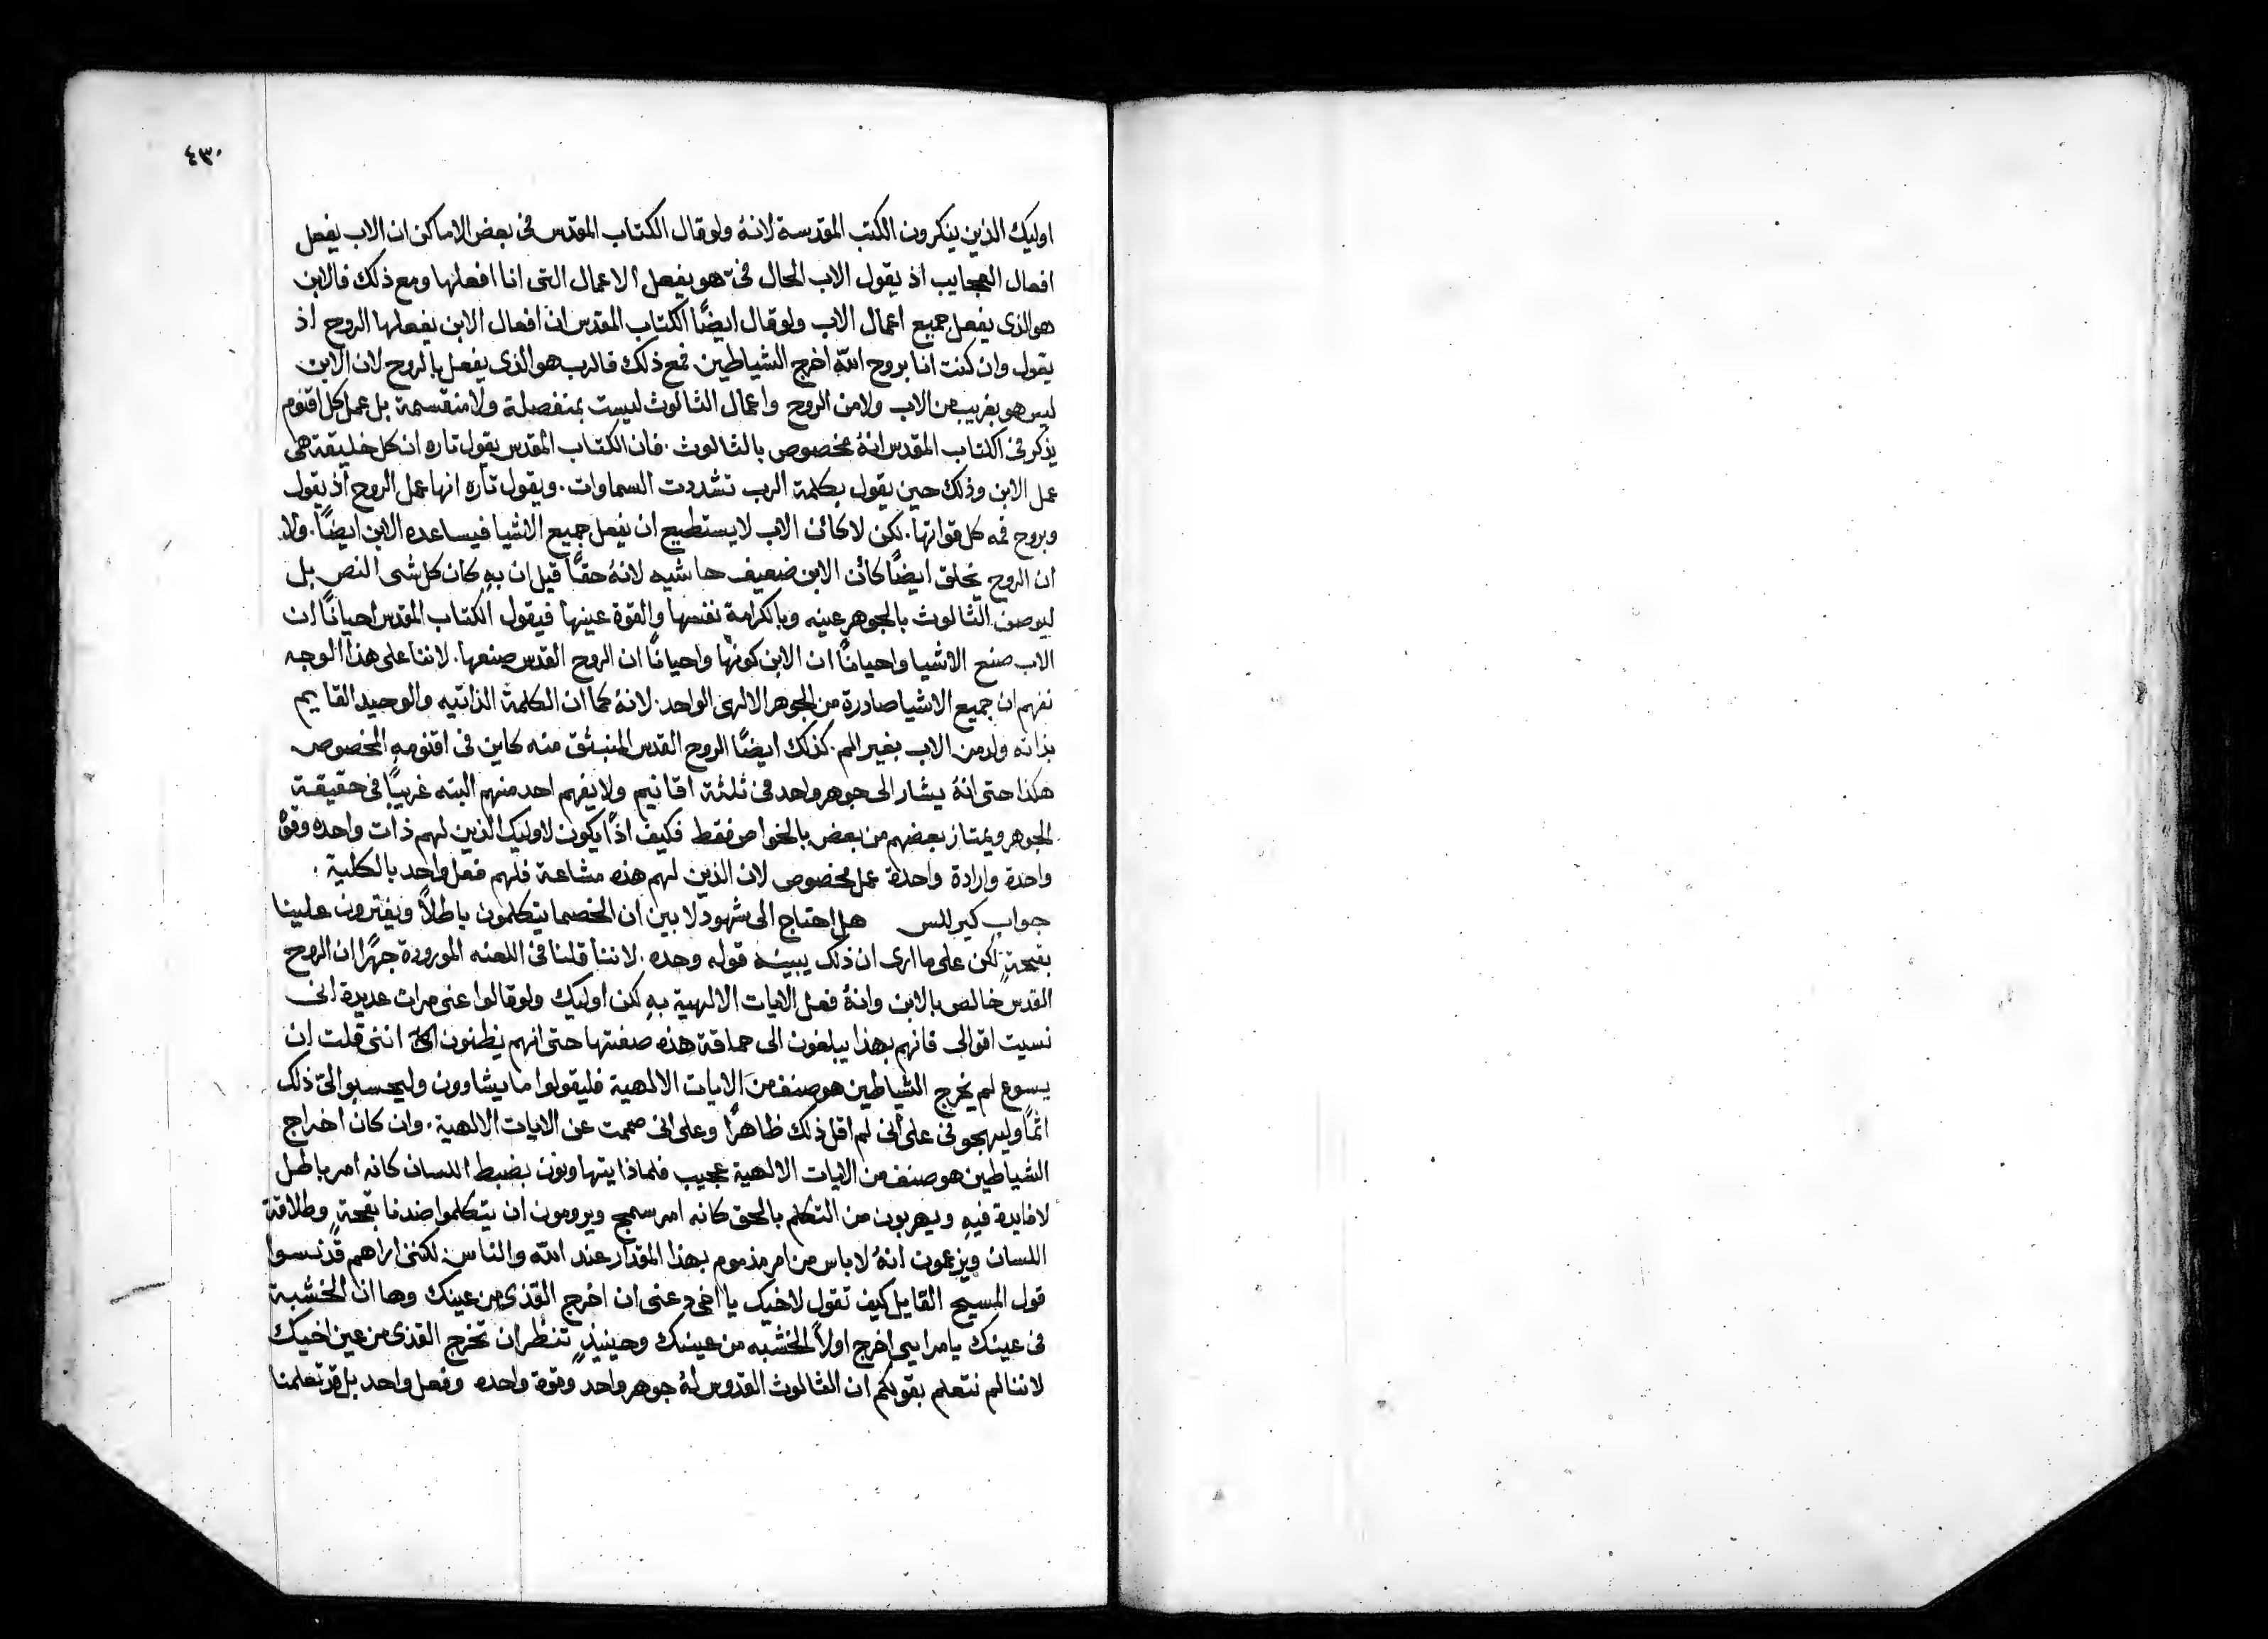 ٤٣٠
اوليك الذين ينكرون الكتب المقدسة لانهُ ولو قال الكتاب المقدس فى بعض الاماكن ان الاب يفعل
افعال العجايب اذ يقول الاب الحال فىّ هو يفعل الاعمال التى انا افعلها ومع ذلك فالابن
هو الذى يفعل جميع اعمال الاب ولو قال ايضًا الكتاب المقدس ان افعال الابن يفعلها الروح اذ
يقول وان كنت انا بروح الله اخرج الشياطين فمع ذلك فالرب هو الذى يفعل بالروح لان الابن
ليس هو بغريب من الاب ولا من الروح واعمال الثالوث ليست بمنفصلة ولا منقسمة بل عمل كل اقنوم
يذكر فى الكتاب المقدس انهُ مخصوص بالثالوث . فان الكتاب المقدس يقول تاره ان كل خليقة هى
عمل الابن وذلك حين يقول بكلمة الرب تشددت السماوات . ويقول تاره انها عمل الروح اذ يقول
وبروح فمه كل قواتها . لكن لا كائن الاب لا يستطيع ان يفعل جميع الاشيا فيساعده الابن ايضًا . ولا
ان الروح يخلق ايضًا كائن الابن ضعيف حاشيه لانهُ حقًا قيل ان بهِ كان كل شى النص بل
ليوصف الثالوث بالجوهر عينه وبالكرامة نفسها والقوة عينها فيقول الكتاب المقدس احيانًا ان
الاب صنع الاشيا واحيانًا ان الابن كونها واحيانًا ان الروح القدس صنعها . لاننا على هذا الوجه
نفهم ان جميع الاشيا صادرة من الجوهر الالهى الواحد . لانهُ كما ان الكلمة الذاتيه والوحيد القايم
بذاته ولد من الاب بغير الم . كذلك ايضًا الروح القدس المنبثق منه كاين فى اقنومهِ المخصوص
هكذا حتى انهُ يشار الى جوهر واحد فى ثلثة اقانيم ولا يفهم احد منهم البته غريبًا فى حقيقة
الجوهر ويمتاز بعضهم من بعض بالخواص فقط فكيف اذًا يكون لاوليك الذين لهم ذات واحده وقوة
واحدة وارادة واحدة عمل مخصوص لان الذين لهم هذه مشاعة فلهم فعل واحد بالكلية .
جواب كيرللس هل احتاج الى شهود لابين ان الخصما يتكلمون باطلاً ويفترون علينا
بقحةٍ لكن على ما ارى ان ذلك يبينه قوله وحده . لاننا قلنا فى اللعنه المورودة جهرًا ان الروح
القدس خالص بالابن وانهُ فعل الايات الالهية بهِ لكن اوليك ولو قالوا عنى مرات عديدة انى
نسيت اقوالى فانهم بهذا يبلغون الى حماقة هذه صفتها حتى انهم يظنون اننى قلت ان
يسوع لم يخرج الشياطين هو صنف من الايات الالهية فليقولوا ما يشاوون وليحسبوا الىّ ذلك
اثمًا وليهجونى على أنى لم اقل ذلك ظاهرًا وعلى انى صممت عن الايات الالهية . وان كان اخراج
الشياطين هو صنف من الايات الالهية عجيب فلماذا يتهاونون بضبط اللسان كانه امر باطل
لا فايدة فيهِ ويهربون من التكلم بالحق كانه امر سمج ويرومون ان يتكلموا ضدنا بقحةٍ وطلاقة
اللسان ويزعمون انهُ لا باس من امر مذموم بهذا المقدار عند الله والناس . لكننى اراهم قد نسوا
قول المسيح القايل كيف تقول لاخيك يا اخى دعنى ان اخرج القذى من عينك وها ان الخشبة
فى عينك يا مرايى اخرج اولاً الخشبه من عينك وحينيذٍ تنظر ان تخرج القذى من عين اخيك
لاننا لم نتعلم بقولكم ان الثالوث القدوس لهُ جوهر واحد وقوة واحده وفعل واحد بل قد تعلمنا